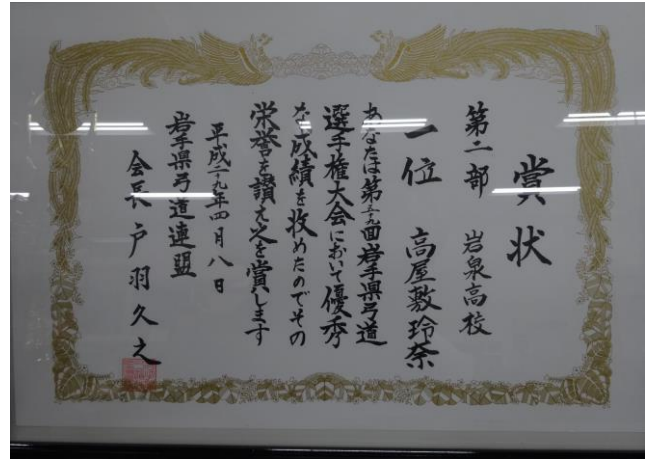 賞状
第一部 岩泉高校
一位 高屋敷玲奈
あなたは第五十九回岩手県弓道
選手権大会において優秀
な成績を收めたのでその
栄誉を讃え之を賞します
平成二十九年四月八日
岩手県弓道連盟
会長 戸羽久之